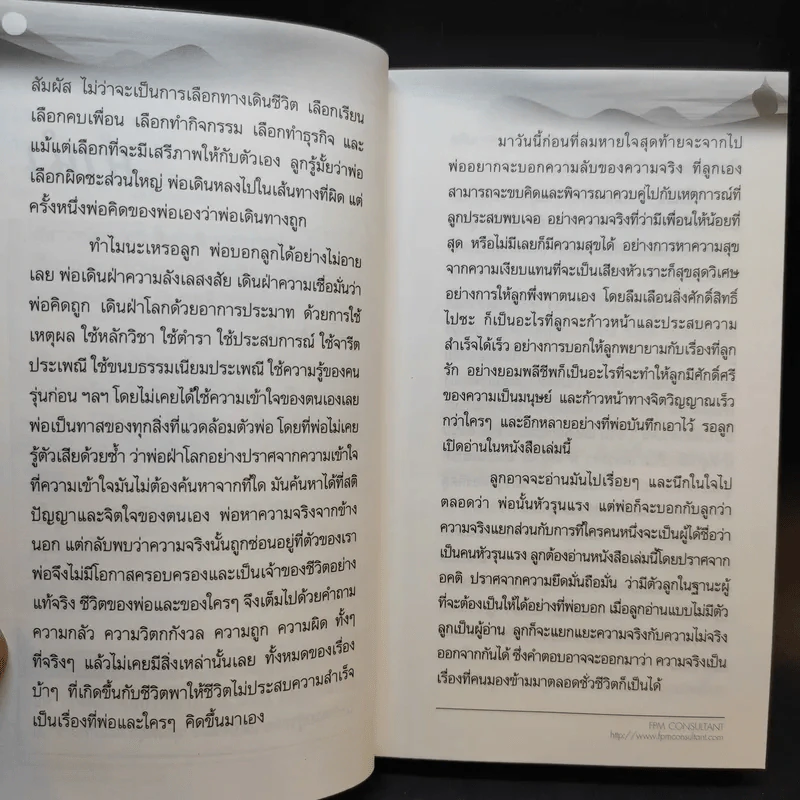 สัมผัส ไม่ว่าจะเป็นการเลือกทางเดินชีวิต เลือกเรียน
เลือกคบเพื่อน เลือกทำกิจกรรม เลือกทำธุรกิจ และ
แม้แต่เลือกที่จะมีเสรีภาพให้กับตัวเอง ลูกรู้มั้ยว่าพ่อ
เลือกผิดซะส่วนใหญ่ พ่อเดินหลงไปในเส้นทางที่ผิด แต่
ครั้งหนึ่งพ่อคิดของพ่อเองว่าพ่อเดินทางถูก
ทำไมนะเหรอลูก พ่อบอกลูกได้อย่างไม่อาย
เลย พ่อเดินฝ่าความลังเลสงสัย เดินฝ่าความเชื่อมั่นว่า
พ่อคิดถูก เดินฝ่าโลกด้วยอาการประมาท ด้วยการใช้
เหตุผล ใช้หลักวิชา ใช้ตำรา ใช้ประสบการณ์ ใช้จารีต
ประเพณี ใช้ขนบธรรมเนียมประเพณี ใช้ความรู้ของคน
รุ่นก่อน ฯลฯ โดยไม่เคยได้ใช้ความเข้าใจของตนเองเลย
พ่อเป็นทาสของทุกสิ่งที่แวดล้อมตัวพ่อ โดยที่พ่อไม่เคย
รู้ตัวเสียด้วยซ้ำ ว่าพ่อฝ่าโลกอย่างปราศจากความเข้าใจ
ที่ความเข้าใจมันไม่ต้องค้นหาจากที่ใด มันค้นหาได้ที่สติ
ปัญญาและจิตใจของตนเอง พ่อหาความจริงจากข้าง
นอก แต่กลับพบว่าความจริงนั้นถูกซ่อนอยู่ที่ตัวของเรา
พ่อจึงไม่มีโอกาสครอบครองและเป็นเจ้าของชีวิตอย่าง
แท้จริง ชีวิตของพ่อและของใครๆ จึงเต็มไปด้วยคำถาม
ความกลัว ความวิตกกังวล ความถูก ความผิด ทั้งๆ
ที่จริงๆ แล้วไม่เคยมีสิ่งเหล่านั้นเลย ทั้งหมดของเรื่อง
บ้าๆ ที่เกิดขึ้นกับชีวิตพาให้ชีวิตไม่ประสบความสำเร็จ
เป็นเรื่องที่พ่อและใครๆ คิดขึ้นมาเอง
มาวันนี้ก่อนที่ลมหายใจสุดท้ายจะจากไป
พ่ออยากจะบอกความลับของความจริง ที่ลูกเอง
สามารถจะขบคิดและพิจารณาควบคู่ไปกับเหตุการณ์ที่
ลูกประสบพบเจอ อย่างความจริงที่ว่ามีเพื่อนให้น้อยที่
สุด หรือไม่มีเลยก็มีความสุขได้ อย่างการหาความสุข
จากความเงียบแทนที่จะเป็นเสียงหัวเราะก็สุขสุดวิเศษ
อย่างการให้ลูกพึ่งพาตนเอง โดยลืมเลือนสิ่งศักดิ์สิทธิ์
ไปซะ ก็เป็นอะไรที่ลูกจะก้าวหน้าและประสบความ
สำเร็จได้เร็ว อย่างการบอกให้ลูกพยายามกับเรื่องที่ลูก
รัก อย่างยอมพลีชีพก็เป็นอะไรที่จะทำให้ลูกมีศักดิ์ศรี
ของความเป็นมนุษย์ และก้าวหน้าทางจิตวิญญาณเร็ว
กว่าใครๆ และอีกหลายอย่างที่พ่อบันทึกเอาไว้ รอลูก
เปิดอ่านในหนังสือเล่มนี้
ลูกอาจจะอ่านมันไปเรื่อยๆ และนึกในใจไป
ตลอดว่า พ่อนั้นหัวรุนแรง แต่พ่อก็จะบอกกับลูกว่า
ความจริงแยกส่วนกับการที่ใครคนหนึ่งจะเป็นผู้ได้ชื่อว่า
เป็นคนหัวรุนแรง ลูกต้องอ่านหนังสือเล่มนี้โดยปราศจาก
อคติ ปราศจากความยึดมั่นถือมั่น ว่ามีตัวลูกในฐานะผู้
ที่จะต้องเป็นให้ได้อย่างที่พ่อบอก เมื่อลูกอ่านแบบไม่มีตัว
ลูกเป็นผู้อ่าน ลูกก็จะแยกแยะความจริงกับความไม่จริง
ออกจากกันได้ ซึ่งคำตอบอาจจะออกมาว่า ความจริงเป็น
เรื่องที่คนมองข้ามมาตลอดชั่วชีวิตก็เป็นได้
FPM CONSULTANT
http://www.fpmconsultant.com